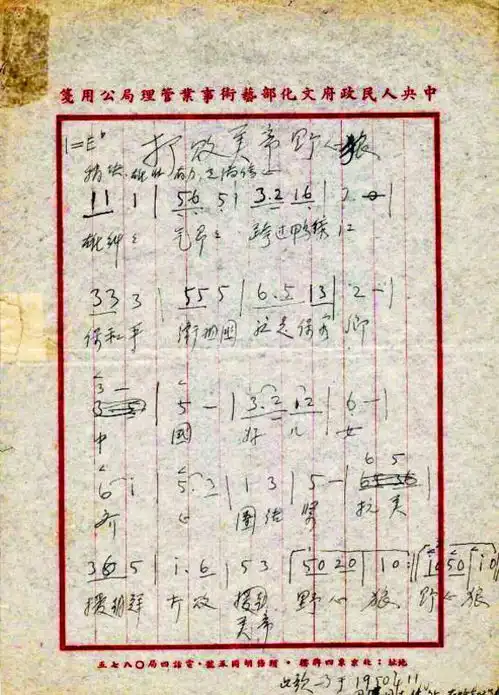 中央人民政府文化部藝術事業管理局公用箋
1=E♭ 打败美帝野心狼
11 1 | 56 5 | 3.2 16 | 2 - |
雄纠纠 气昂昂 跨过鸭绿江
33 3 | 55 5 | 6.5 13 | 2 - |
保和平 卫祖国 就是保家乡
3 - | 5 - | 3.2 12 | 6 - |
中 国 好 儿 女
6 i | 5. 3 | 1 3 | 5 - | 6 5
齐 心 团结 紧 抗美
36 5 | i. 6 | 53 | 50 20 | 10 :|| 10 50 | i0
援朝鲜 打败 美帝 野心 狼 野心狼
地址：北京東四牌樓·頭條胡同五號·電話四局〇八七五
1950.11